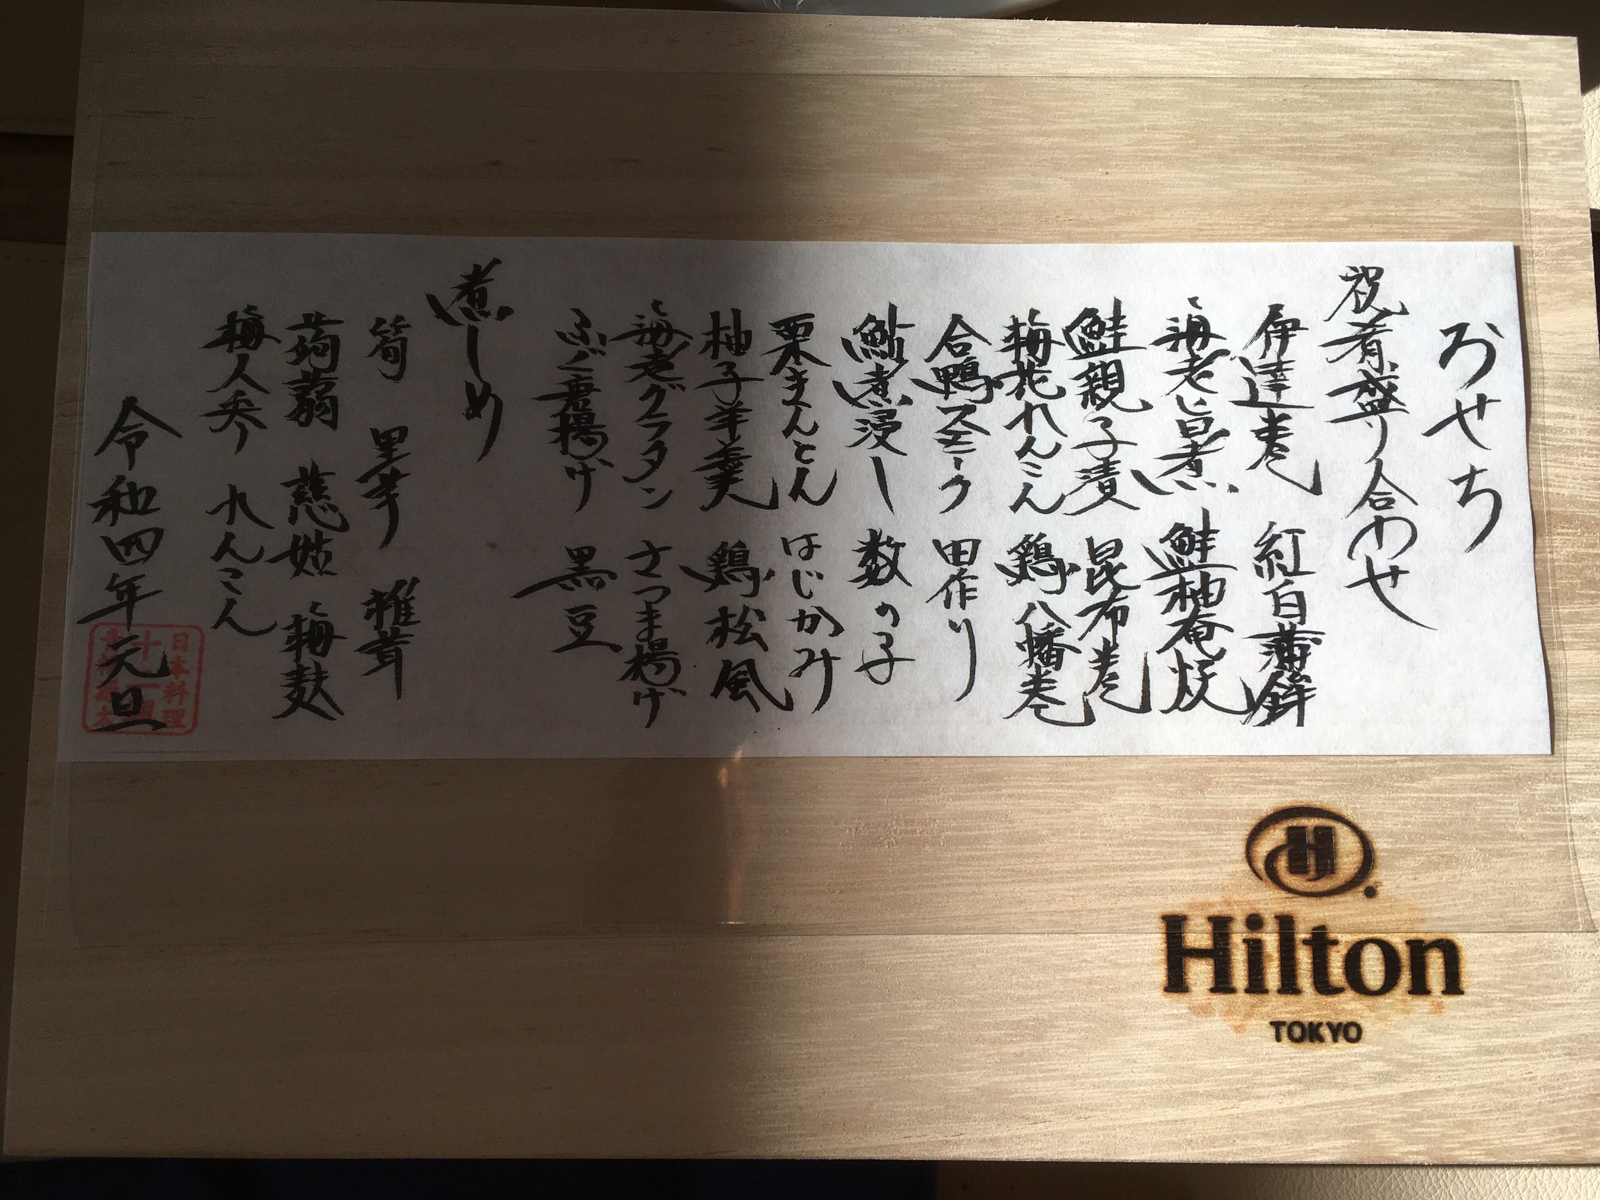 おせち
祝肴盛り合わせ
伊達巻 紅白蒲鉾
海老旨煮 鮭柚庵焼
鮭親子漬 昆布巻
梅花れんこん 鶏八幡巻
合鴨スモーク 田作り
鮎煮浸し 数の子
栗きんとん はじかみ
柚子羊羹 鶏松風
海老グラタン さつま揚げ
ふぐ唐揚げ 黒豆
煮しめ
筍 里芋 椎茸
蒟蒻 慈姑 梅麸
梅人参 れんこん
令和四年元旦
日本料理
Hilton
TOKYO